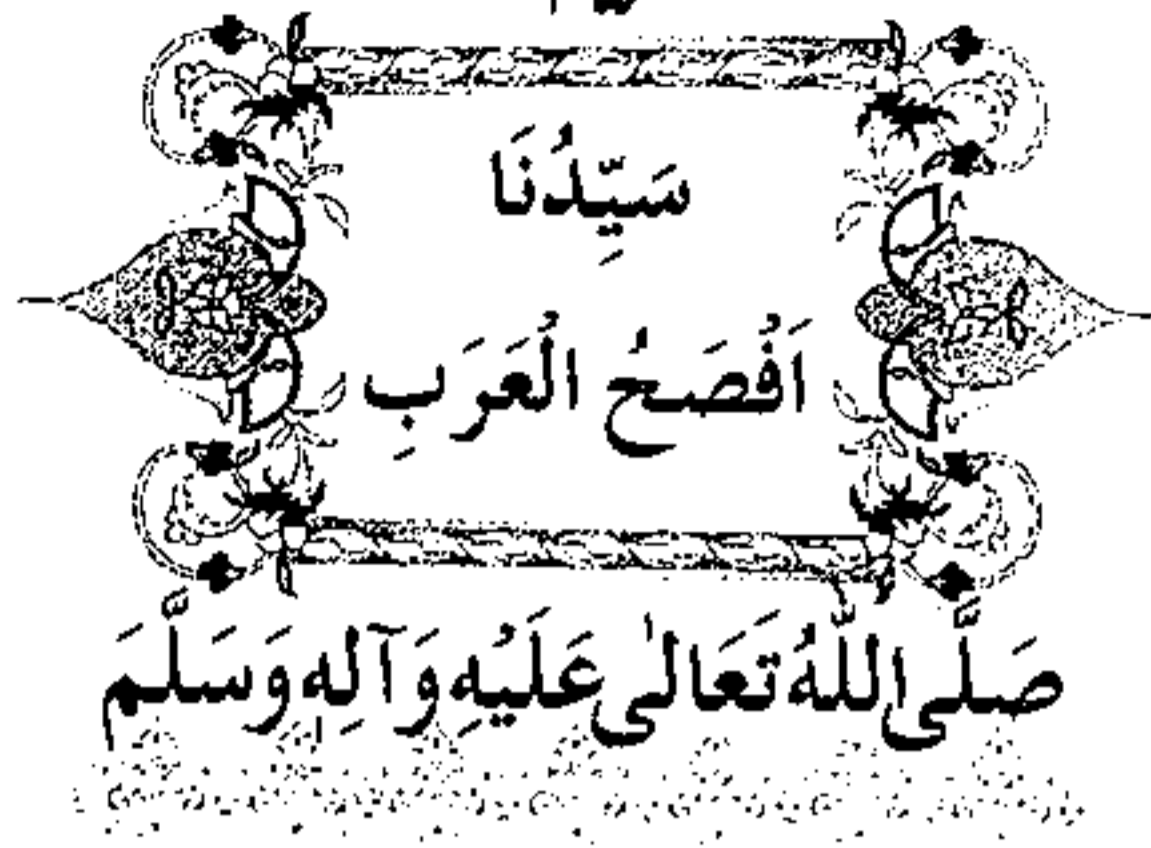 سَيِّدُنَا
اَفْصَحُ الْعَرَبِ
صَلَّى اللّٰهُ تَعَالٰى عَلَيْهِ وَآلِهِ وَسَلَّمَ